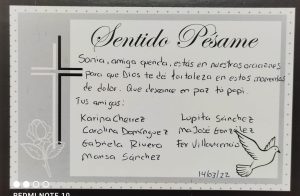 Sentido Pésame
Sonia, amiga querida, estás en nuestras oraciones
para que Dios te dé fortaleza en estos momentos
de dolor. Que descanse en paz tu papi.
Tus amigas:
Karina Chérrez Lupita Sánchez
Carolina Domínguez Ma José González
Gabriela Rivera Fer Villavicencio
Marisa Sánchez
14/03/22
REDMI NOTE 10